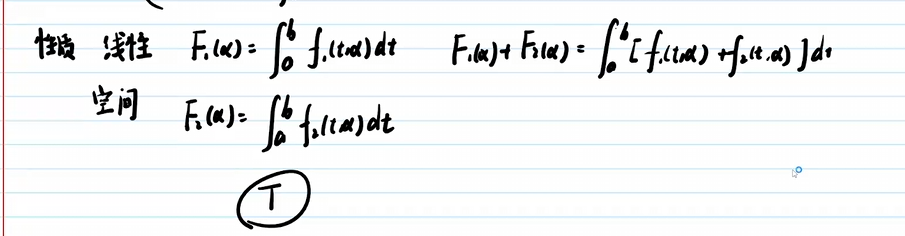 性质 线性 F₁(α) = ∫₀ᵇ f₁(t,α)dt F₁(α) + F₂(α) = ∫ₐᵇ [f₁(t,α) + f₂(t,α)]dt
空间 F₂(α) = ∫ₐᵇ f₂(t,α)dt
T